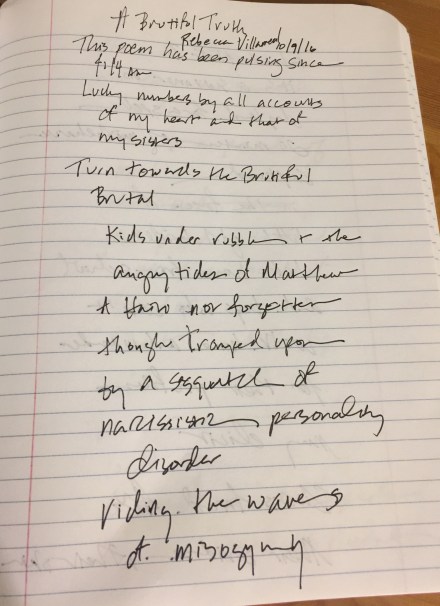 A Brutiful Truth
Rebecca Villarreal 10/9/16
This poem has been pulsing since
4:14 am
Lucky numbers by all accounts
of my heart and that of
my sisters
Turn towards the Brutiful
Brutal
Kids under rubble + the
angry tides of Matthew
A Haiti not forgotten
though Tromped upon
by a sasquatch of
narcissistic personality
disorder
riding the waves
of misogyny